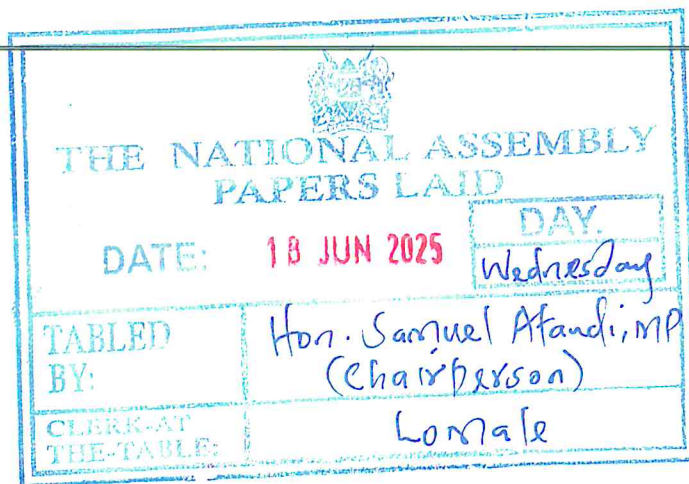 THE NATIONAL ASSEMBLY
PAPERS LAID
DATE: 18 JUN 2025
DAY.
Wednesday
TABLED BY:
Hon. Samuel Atandi, MP
(Chairperson)
CLERK-AT THE-TABLE: